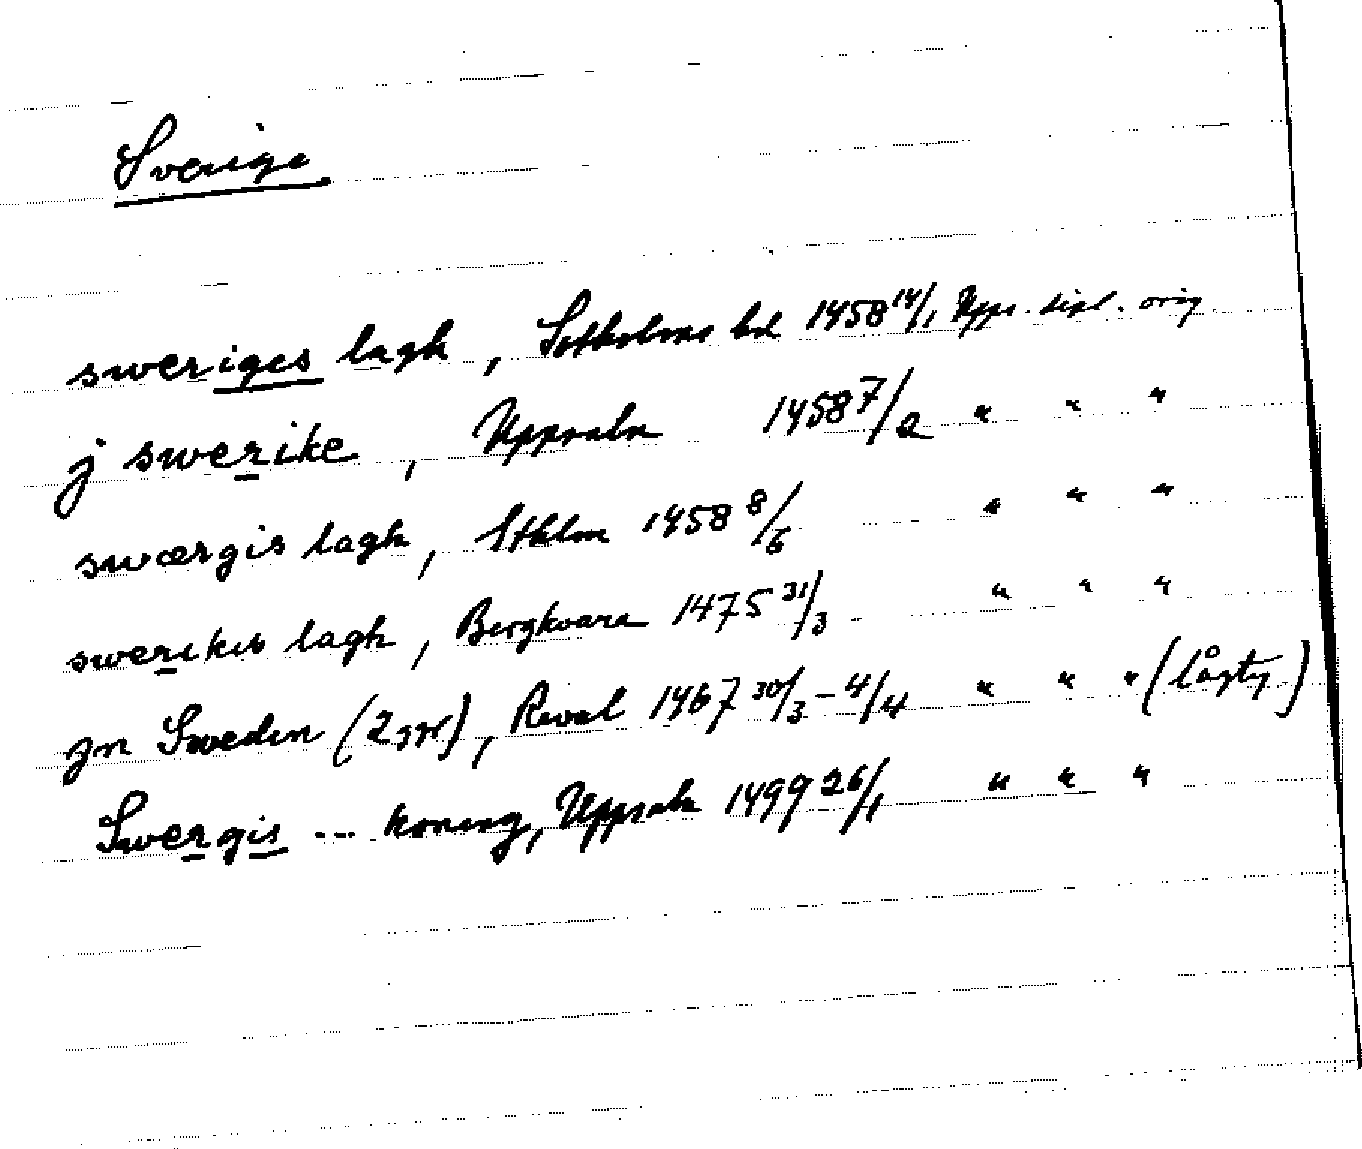 Sverige
sweriges lagh, Sotholms hd 1458 14/1 Upps. dipl. orig.
j swerike, Uppsala 1458 7/2 " " "
swærgis lagh, Sthlm 1458 8/6 " " "
swerikis lagh, Bergkvara 1475 31/3 " " "
jn Sweden (2 ggr), Reval 1467 30/3 – 4/4 " " " (lågty.)
Swergis --- koning, Uppsala 1499 26/1 " " "